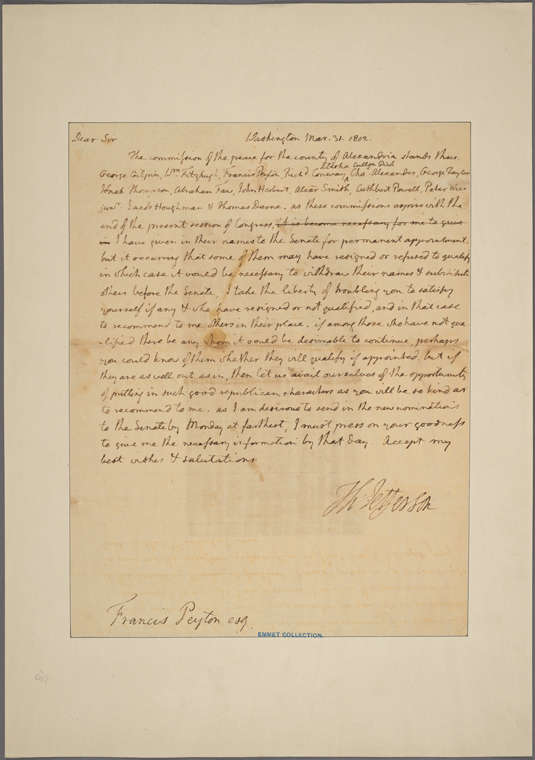 Dear Sir Washington Mar. 31. 1802.
The commission of the peace for the county of Alexandria stands thus.
Elisha Cullen Dick
George Gilpin, Wm. Fitzhugh, Francis Peyton, Richd Conway, Chas Alexander, George Taylor
Jonah Thompson, Abraham Faw, John Herbert, Alexr Smith, Cuthbert Powell, Peter Wise
junr. Jacob Houghman & Thomas Darne. as these commissions expire with the
end of the present session of Congress, it is become necessary for me to give
in I have given in their names to the Senate for permanent appointment
but it occurring that some of them may have resigned or refused to qualify
in which case it would be necessary to withdraw their names & substitute
others before the Senate. I take the liberty of troubling you to satisfy
yourself if any & who have resigned or not qualified, and in that case
to recommend to me others in their place. if among those who have not qua-
-lified there be any whom it would be desireable to continue, perhaps
you could know of them whether they will qualify if appointed. but if
they are as well out as in, then let us avail ourselves of the opportunity
of putting in such good republican characters as you will be so kind as
to recommend to me. as I am desirous to send in the new nominations
to the Senate by Monday at farthest, I must press on your goodness
to give me the necessary information by that day. Accept my
best wishes & salutations
Th: Jefferson
Francis Peyton esq.
EMMET COLLECTION.